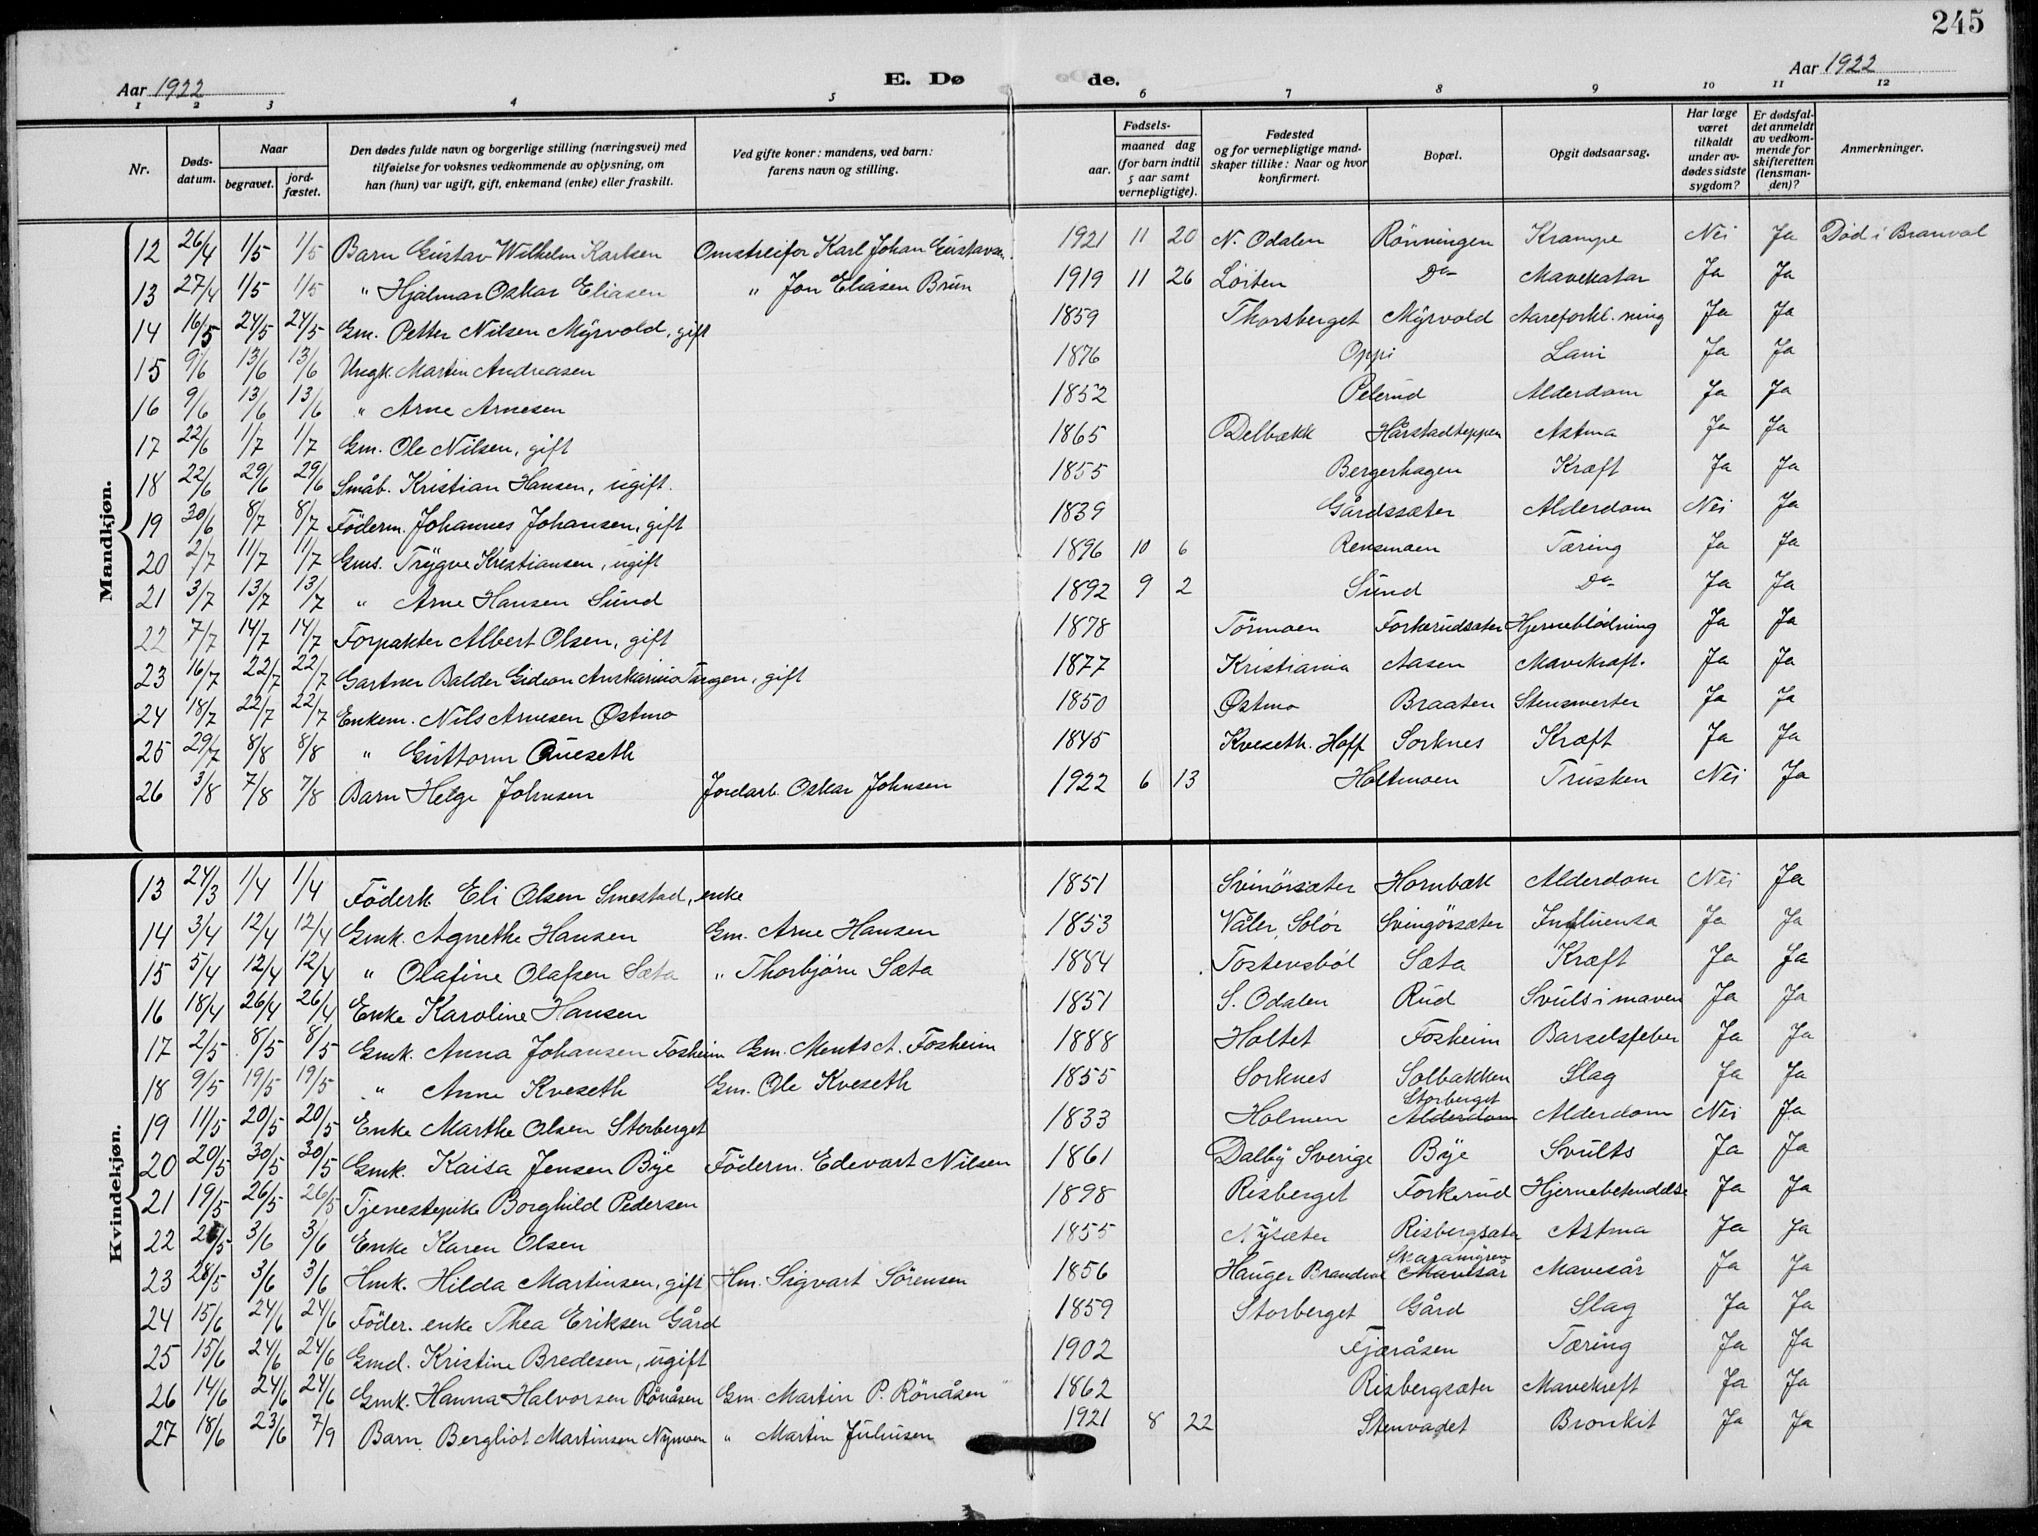 245
Aar 1922 E. Dø de. Aar 1922
1 2 3 4 5 6 7 8 9 10 11 12
Nr. Døds-datum. Naar begravet. jord-fæstet. Den dødes fulde navn og borgerlige stilling (næringsvei) med tilføielse for voksnes vedkommende av oplysning, om han (hun) var ugift, gift, enkemand (enke) eller fraskilt. Ved gifte koner: mandens, ved barn: farens navn og stilling. Fødsels- aar. maaned dag (for barn indtil 5 aar samt vernepligtige). Fødested og for vernepligtige mand-skaper tillike: Naar og hvor konfirmert. Bopæl. Opgit dødsaarsag. Har læge været tilkaldt under av-dødes sidste sygdom? Er dødsfal-det anmeldt av vedkom-mende for skifteretten (lensman-den)? Anmerkninger.
Mandkjøn.
12 26/4 1/5 1/5 Barn Gustav Wilhelm Karlsen Omstreifer Karl Johan Gustavsen 1921 11 20 N. Odalen Rönningen Krampe Nei Ja Död i Branval
13 27/4 1/5 1/5 " Hjalmar Oskar Eliasen " Jon Eliasen Brun 1919 11 26 Löiten Do Mavekatar Ja Ja
14 16/5 24/5 24/5 Gm. Petter Nilsen Myrvold, gift 1859 Thorsberget Myrvold Aareforkl.ning Ja Ja
15 9/6 13/6 13/6 Ungk. Martin Andreasen 1876 Oppi Ja Ja
16 9/6 13/6 13/6 " Arne Arnesen 1852 Pelerud Alderdom Ja Ja
17 22/6 1/7 1/7 Gm. Ole Nilsen, gift 1865 Delbækk Hårstadteppen Astma Ja Ja
18 22/6 29/6 29/6 Småb. Kristian Hansen, ugift. 1855 Bergerhagen Kræft Ja Ja
19 30/6 8/7 8/7 Föderm. Johannes Johansen, gift 1839 Gårdssæter Alderdom Nei Ja
20 2/7 11/7 11/7 Gms. Trygve Kristiansen, ugift 1896 10 6 Rensmoen Tæring Ja Ja
21 3/7 13/7 13/7 " Arne Hansen Sund 1892 9 2 Sund Do Ja Ja
22 7/7 14/7 14/7 Forpakter Albert Olsen, gift 1878 Törmoen Forkerudsæter Hjerneblödning Ja Ja
23 16/7 22/7 22/7 Gartner Balder Gideon Tangen, gift 1877 Kristiania Aasen Mavekræft. Ja Ja
24 18/7 22/7 22/7 Enkem. Nils Arnesen Østmo 1850 Østmo Braaten Stensmerter Ja Ja
25 29/7 8/8 8/8 " Guttorm Queseth 1845 Kveseth. Hoff Sorknes Kræft Ja Ja
26 3/8 7/8 7/8 Barn Helge Johnsen Jordarb. Oskar Johnsen 1922 6 13 Holtmoen Trusken Nei Ja
Kvindekjøn.
13 24/3 1/4 1/4 Föderk. Eli Olsen Smestad, enke 1851 Svinörsæter Hornbæk Alderdom Nei Ja
14 3/4 12/4 12/4 Gmk. Agnethe Hansen Gm. Arne Hansen 1853 Våler, Solör Svingörsæter Influensa Ja Ja
15 5/4 12/4 12/4 " Olafine Olafsen Sæta " Thorbjørn Sæta 1884 Tostensböl Sæta Kræft Ja Ja
16 18/4 26/4 26/4 Enke Karoline Hansen 1851 S. Odalen Rud Svuls i maven Ja Ja
17 2/5 8/5 8/5 Gmk. Anna Johansen Fosheim Gm. Ments A. Fosheim 1888 Holtet Fosheim Barselsfeber Ja Ja
18 9/5 19/5 19/5 " Anne Kveseth Gm. Ole Kveseth 1855 Sorknes Solbakken Slag Ja Ja
19 11/5 20/5 20/5 Enke Marthe Olsen Storberget 1833 Holmen Storberget Alderdom Alderdom Nei Ja
20 20/5 30/5 30/5 Gmk. Kaisa Jensen Bye Föderm. Edevart Nilsen 1861 Dalby Sverige Bye Svults Ja Ja
21 19/5 26/5 26/5 Tjenestepike Borghild Pedersen 1898 Risberget Forkerud Hjernebetendelse Ja Ja
22 3/6 3/6 Enke Karen Olsen 1855 Nysæter Risbergsæter Astma Ja Ja
23 28/5 3/6 3/6 Hmk. Hilda Martinsen, gift Hm. Sigvart Sörensen 1856 Hauger Brandval Skaramyren Mavesår Mavesår Ja Ja
24 15/6 24/6 24/6 Föder. enke Thea Eriksen Gård 1859 Storberget Gård Slag Ja Ja
25 15/6 24/6 24/6 Gmd. Kristine Bredesen, ugift 1902 Fjæråsen Tæring Ja Ja
26 14/6 24/6 24/6 Gmk. Hanna Halvorsen Rönåsen Gm. Martin P. Rönåsen 1862 Risbergsæter Mavekreft Ja Ja
27 18/6 23/6 7/9 Barn Bergliot Martinsen Nymoen " Martin Juliusen 1921 8 22 Stenvadet Bronkit Ja Ja